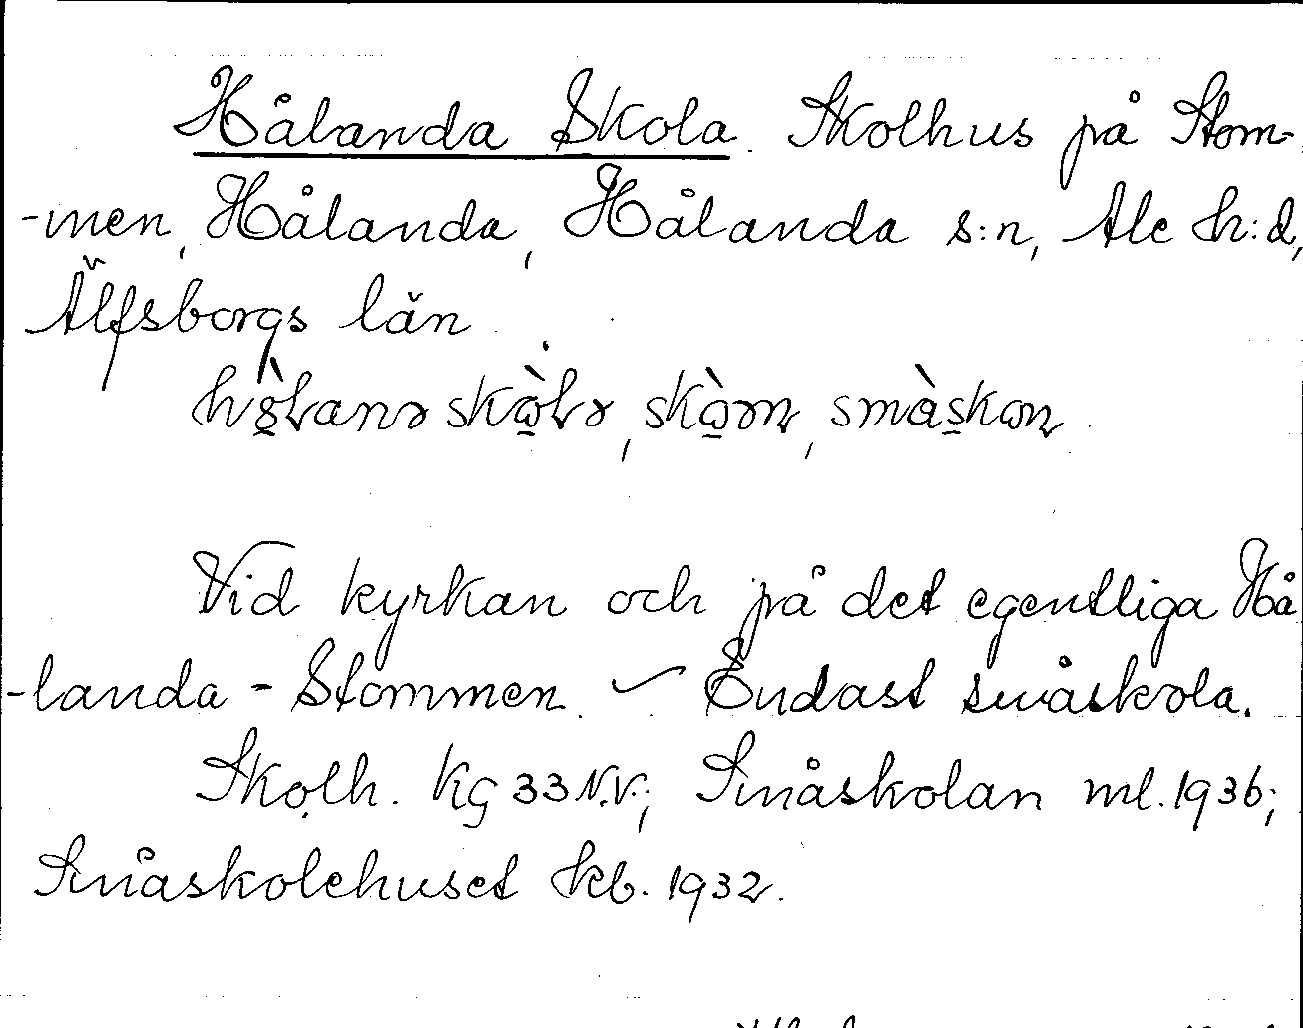 Hålanda Skola. Skolhus på Stom-
-men, Hålanda, Hålanda s:n, Ale h:d,
Älfsborgs län.
Vid kyrkan och på det egentliga Hå
-landa - Stommen. Endast småskola.
Skolh. Kg 33 N.V.; Småskolan ml. 1936;
Småskolehuset kb. 1932.